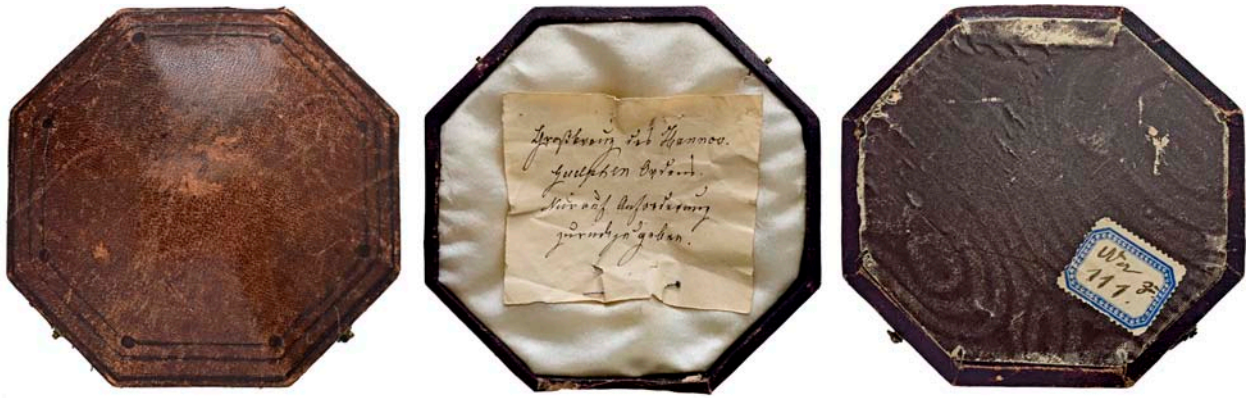 Großkreuz des Hannov.
Guelphen Ordens.
Nur auf Anforderung
zurückzugeben.
111.